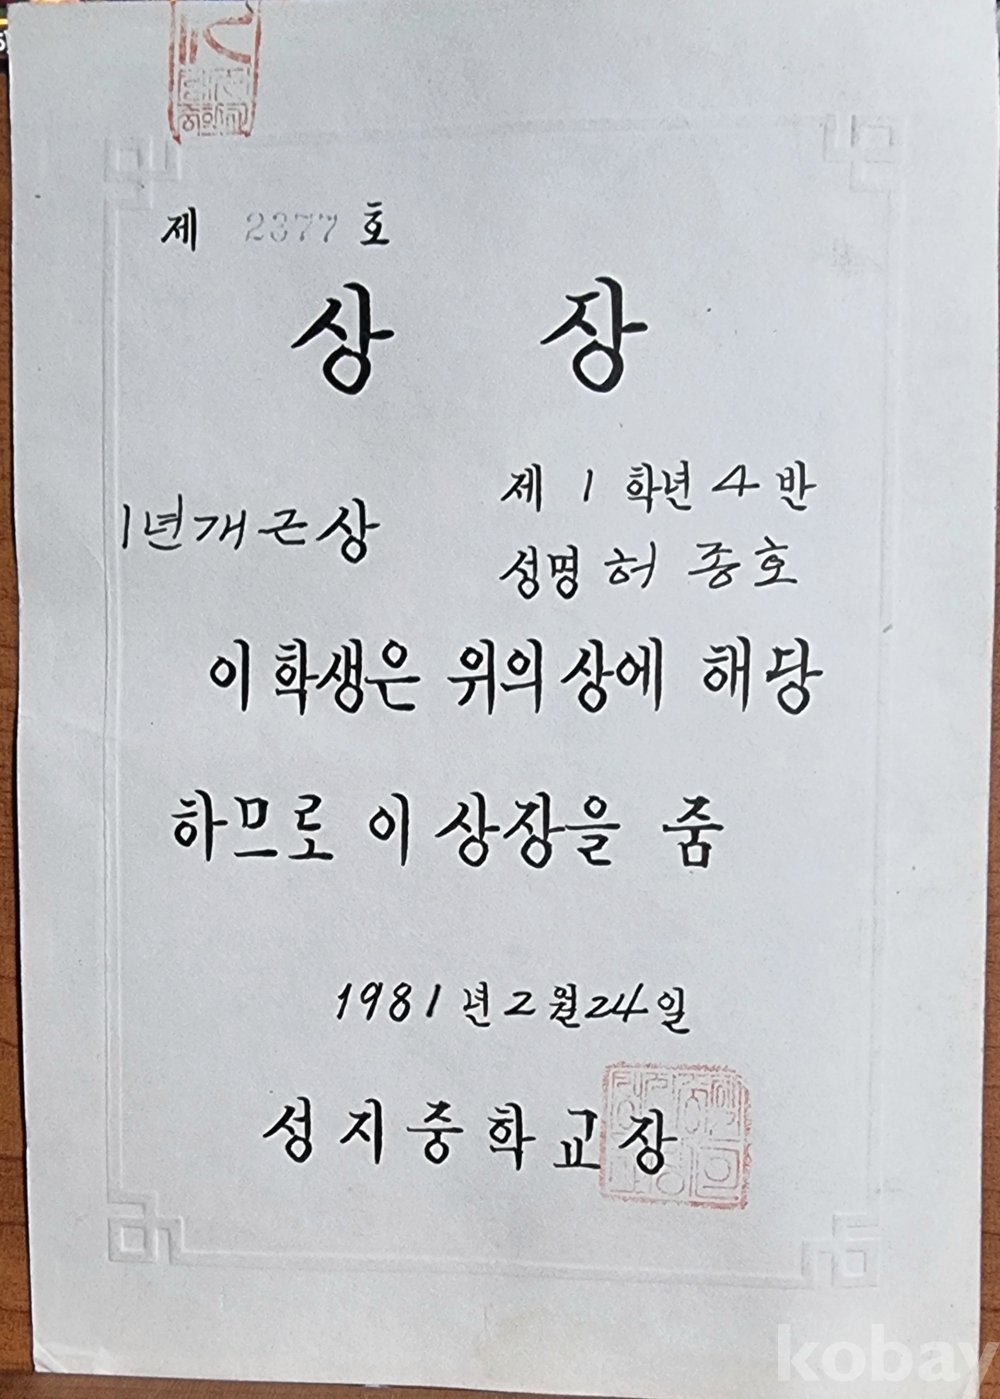 제 2377 호
상 장
1년개근상
제 1 학년 4 반
성명 허 종 호
이 학생은 위의 상에 해당
하므로 이 상장을 줌
1981 년 2 월 24 일
성지중학교장
kobay